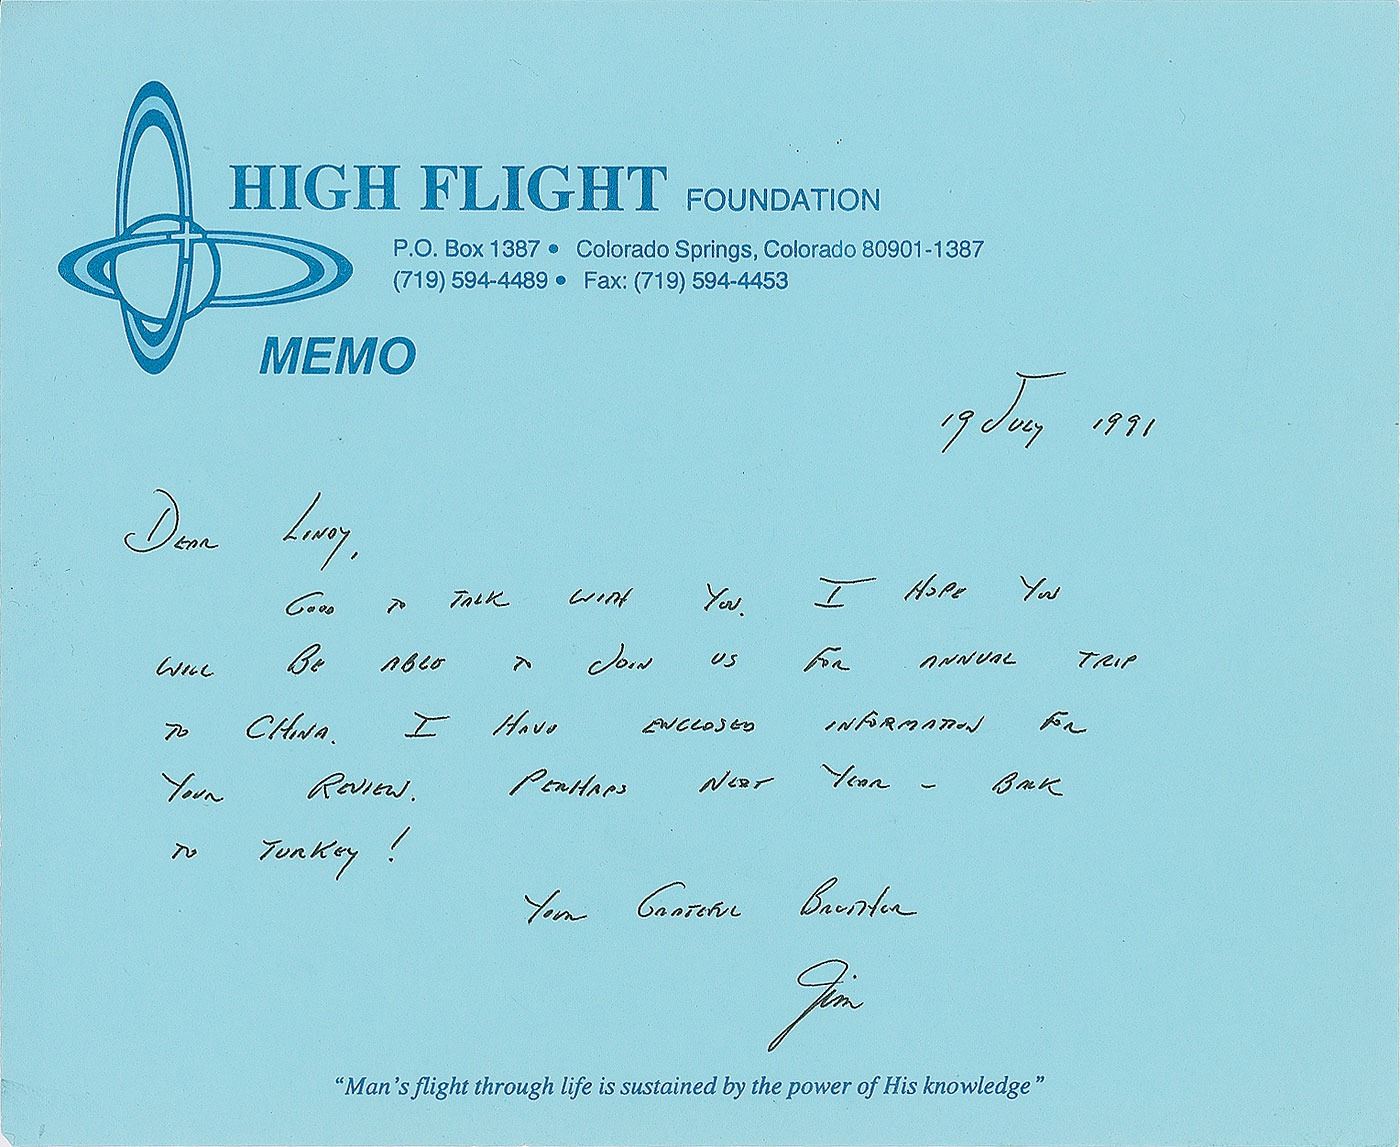 HIGH FLIGHT FOUNDATION
P.O. Box 1387 • Colorado Springs, Colorado 80901-1387
(719) 594-4489 • Fax: (719) 594-4453
MEMO
19 July 1991
Dear Lindy,
Good to talk with You. I Hope You
will Be able to Join us for annual trip
to China. I Have enclosed information for
Your Review. Perhaps next Year – Back
to Turkey!
Your Grateful Brother
Jim
“Man’s flight through life is sustained by the power of His knowledge”